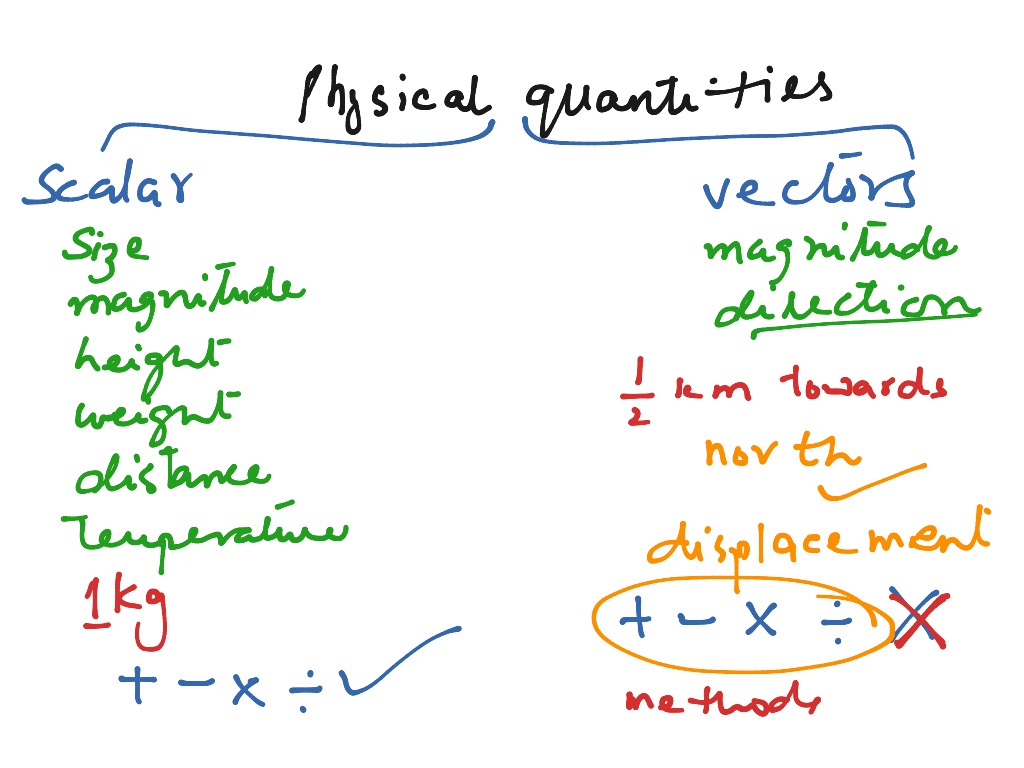 Physical quantities
Scalar
Size
magnitude
height
weight
distance
Temperature
1 kg
+ - x ÷ ✓
vectors
magnitude
direction
1/2 km towards
north ✓
displacement
+ - x ÷ X
methods